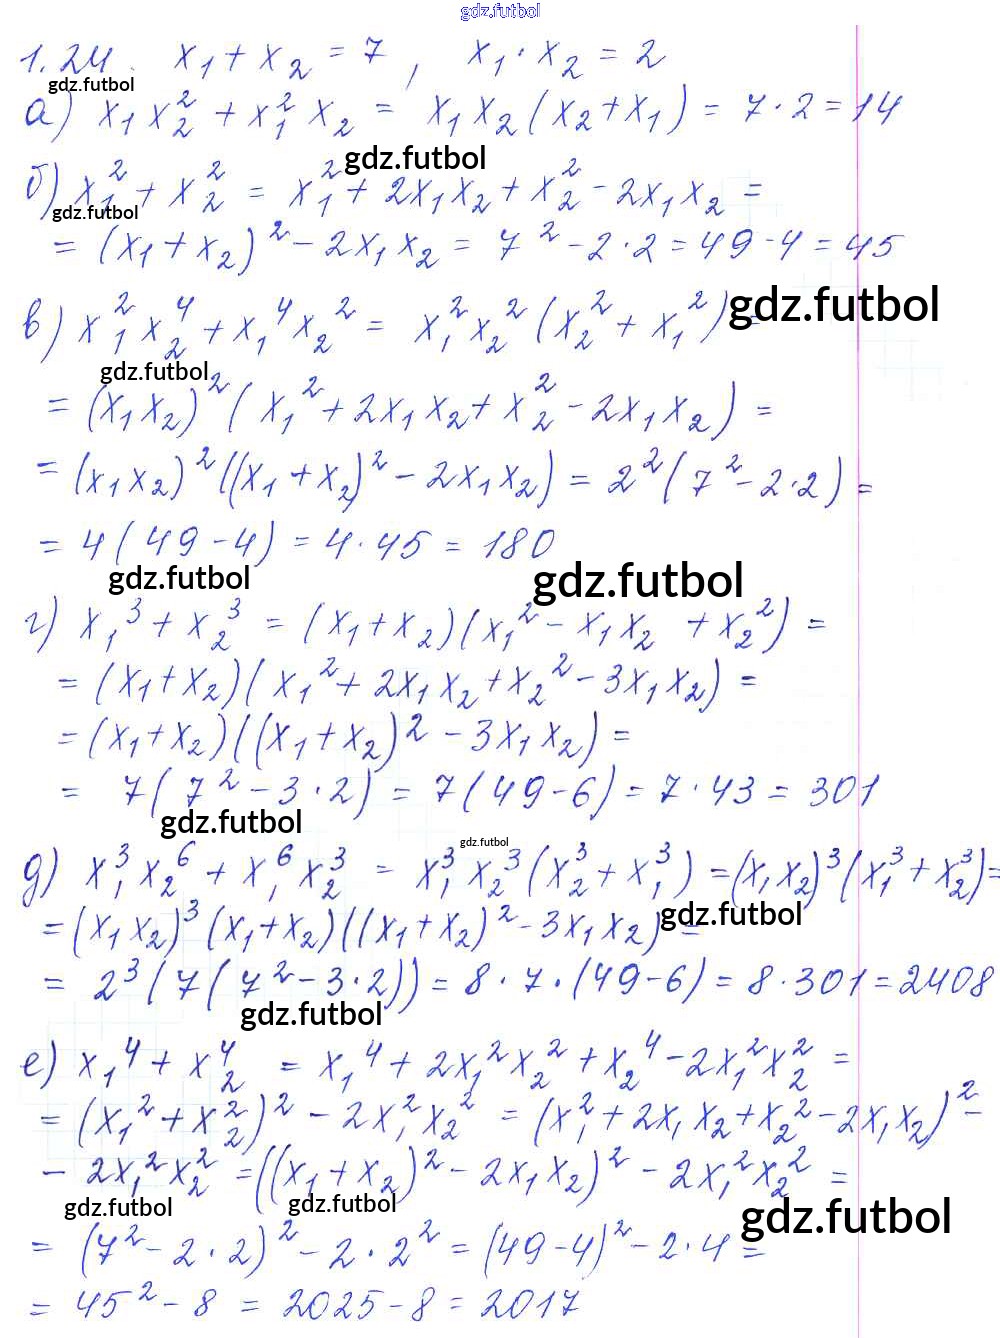 gdz.futbol
1.24. x₁ + x₂ = 7, x₁ · x₂ = 2
gdz.futbol
а) x₁x₂² + x₁²x₂ = x₁x₂(x₂ + x₁) = 7 · 2 = 14
gdz.futbol
б) x₁² + x₂² = x₁² + 2x₁x₂ + x₂² - 2x₁x₂ =
gdz.futbol
= (x₁ + x₂)² - 2x₁x₂ = 7² - 2 · 2 = 49 - 4 = 45
gdz.futbol
в) x₁²x₂⁴ + x₁⁴x₂² = x₁²x₂²(x₂² + x₁²) =
gdz.futbol
= (x₁x₂)²(x₁² + 2x₁x₂ + x₂² - 2x₁x₂) =
= (x₁x₂)²((x₁ + x₂)² - 2x₁x₂) = 2²(7² - 2 · 2) =
= 4(49 - 4) = 4 · 45 = 180
gdz.futbol gdz.futbol
г) x₁³ + x₂³ = (x₁ + x₂)(x₁² - x₁x₂ + x₂²) =
= (x₁ + x₂)(x₁² + 2x₁x₂ + x₂² - 3x₁x₂) =
= (x₁ + x₂)((x₁ + x₂)² - 3x₁x₂) =
= 7(7² - 3 · 2) = 7(49 - 6) = 7 · 43 = 301
gdz.futbol
gdz.futbol
д) x₁³x₂⁶ + x₁⁶x₂³ = x₁³x₂³(x₂³ + x₁³) = (x₁x₂)³(x₁³ + x₂³) =
= (x₁x₂)³(x₁ + x₂)((x₁ + x₂)² - 3x₁x₂) =
gdz.futbol
= 2³(7(7² - 3 · 2)) = 8 · 7 · (49 - 6) = 8 · 301 = 2408
gdz.futbol
е) x₁⁴ + x₂⁴ = x₁⁴ + 2x₁²x₂² + x₂⁴ - 2x₁²x₂² =
= (x₁² + x₂²)² - 2x₁²x₂² = (x₁² + 2x₁x₂ + x₂² - 2x₁x₂)² -
- 2x₁²x₂² = ((x₁ + x₂)² - 2x₁x₂)² - 2x₁²x₂² =
gdz.futbol gdz.futbol gdz.futbol
= (7² - 2 · 2)² - 2 · 2² = (49 - 4)² - 2 · 4 =
= 45² - 8 = 2025 - 8 = 2017